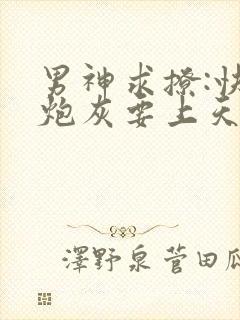 男神求撩:快
炮灰要上天
澤野泉菅田瓜